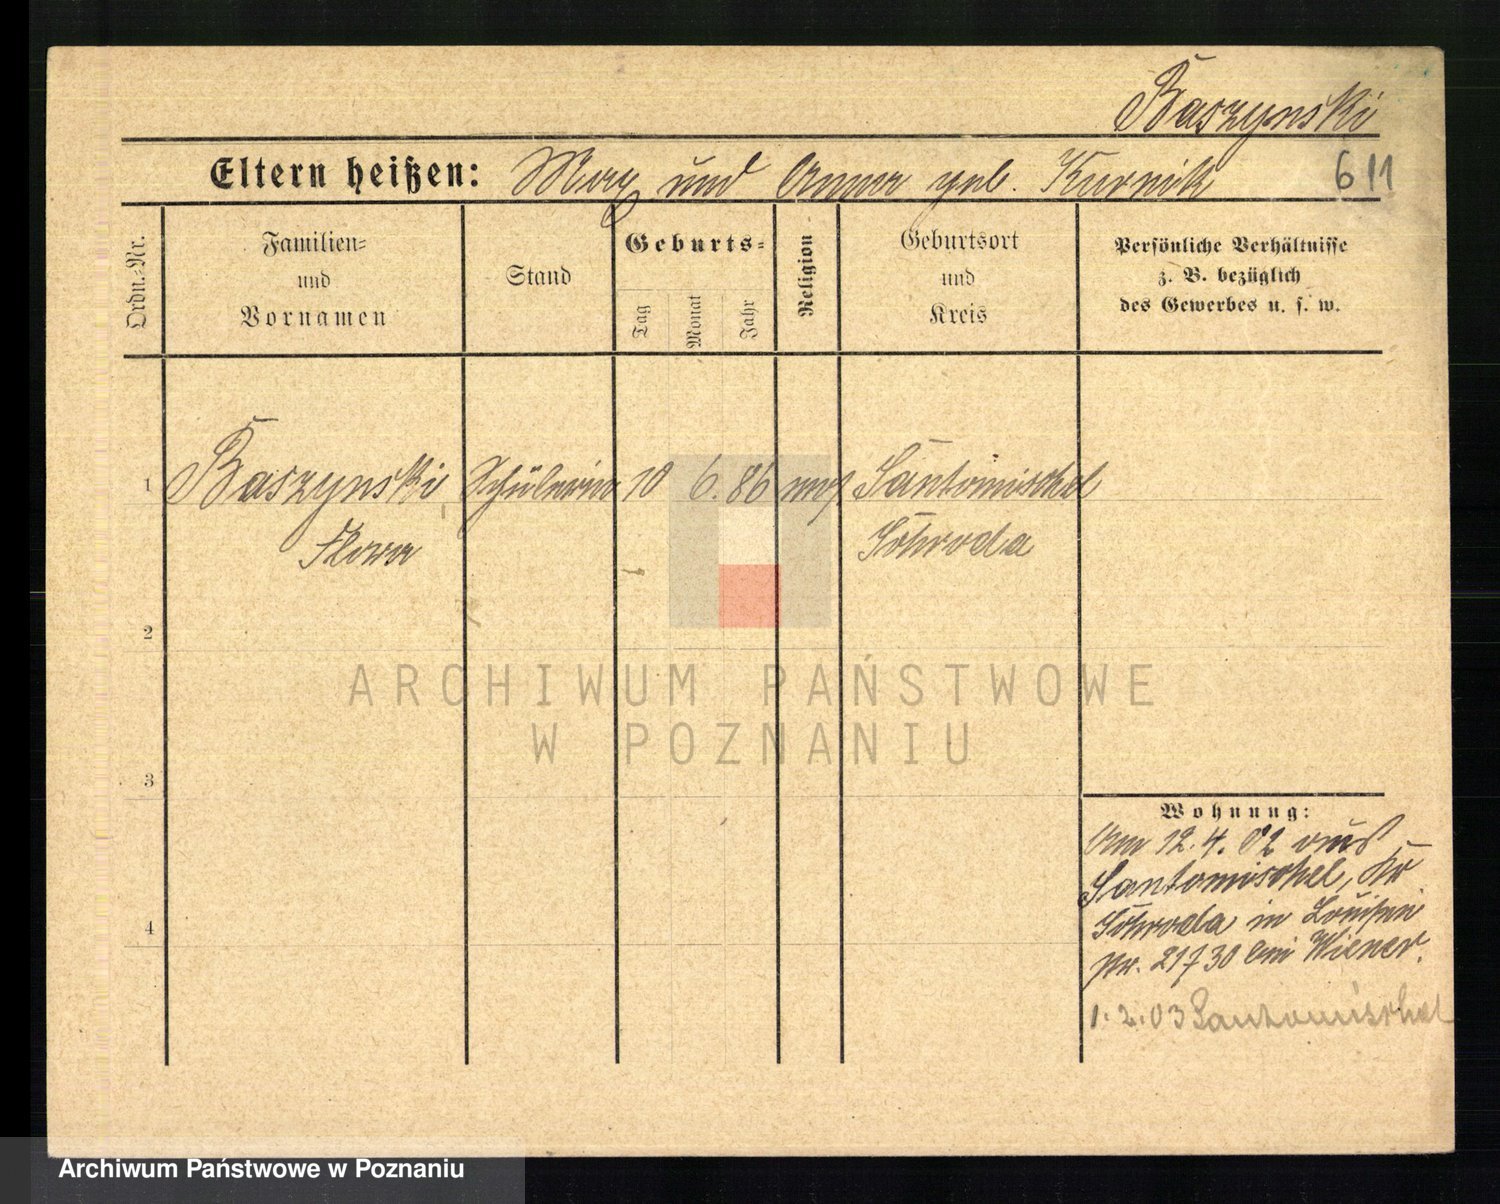 Baszynski
Eltern heißen: Max und Anna geb. Kurnik 611
Ordn.-Nr.
Familien-
und
Vornamen
Stand
Geburts-
Tag
Monat
Jahr
Religion
Geburtsort
und
Kreis
Persönliche Verhältnisse
z. B. bezüglich
des Gewerbes u. s. w.
1 Baszynski Schülerin 10 6. 86 mos Santomischel
Flora Schroda
2
3
4
Wohnung:
Am 12.4.02 aus
Santomischel, Kr
Schroda in Louisen
30 bei Wiener.
1.2.03 Santomischel
ARCHIWUM PAŃSTWOWE
W POZNANIU
Archiwum Państwowe w Poznaniu